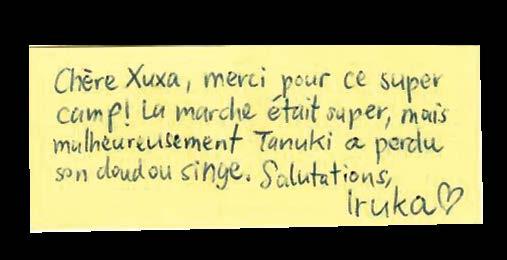 Chère Xuxa, merci pour ce super
camp! La marche était super, mais
malheureusement Tanuki a perdu
son doudou singe. Salutations,
Iruka♡